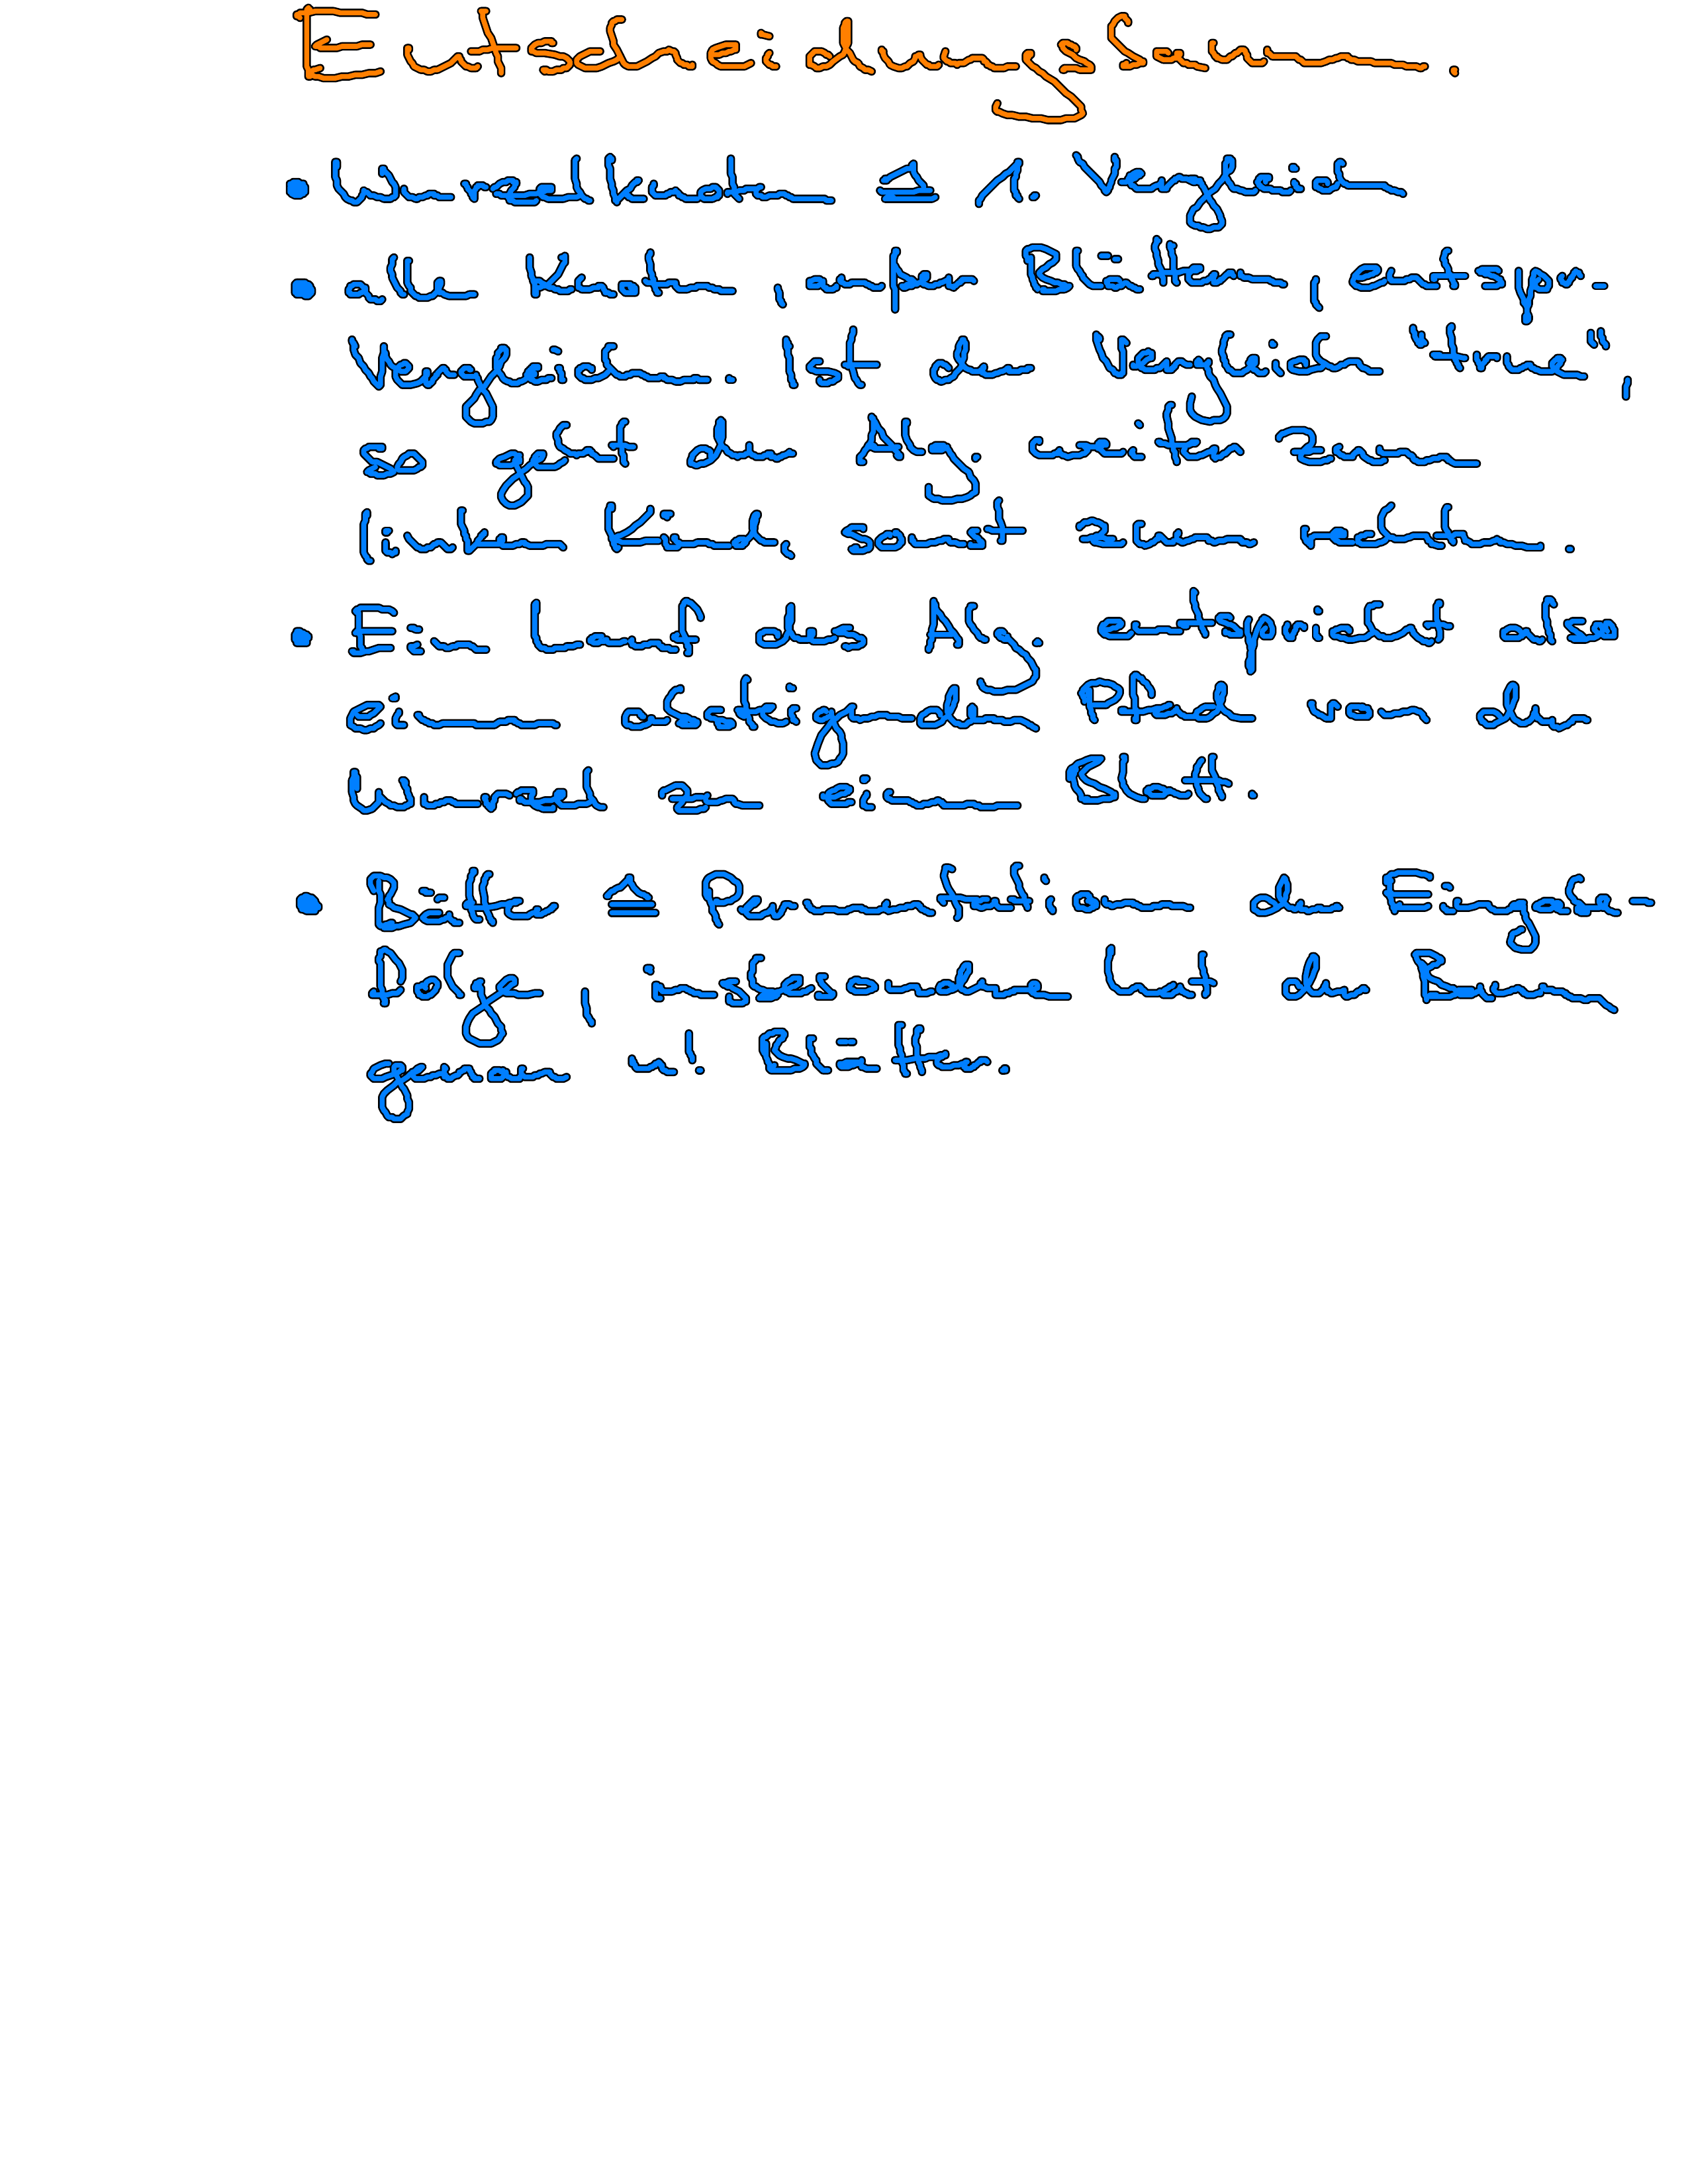 Entscheidungsbaum.
• Wurzelknoten ≙ 1. Vergleich
• alle Knoten, außer Blättern, entspr.
Vergleichen. Ist der Vergleich "true",
so geht der Alg. weiter zum
linken Kind, sonst zum rechten.
• Ein Lauf des Alg. entspricht also
einem absteigenden Pfad von der
Wurzel zu einem Blatt.
• Bätter ≙ Permutationen der Eingabe-
Folge, insbesondere hat der Baum
genau n! Blätter.